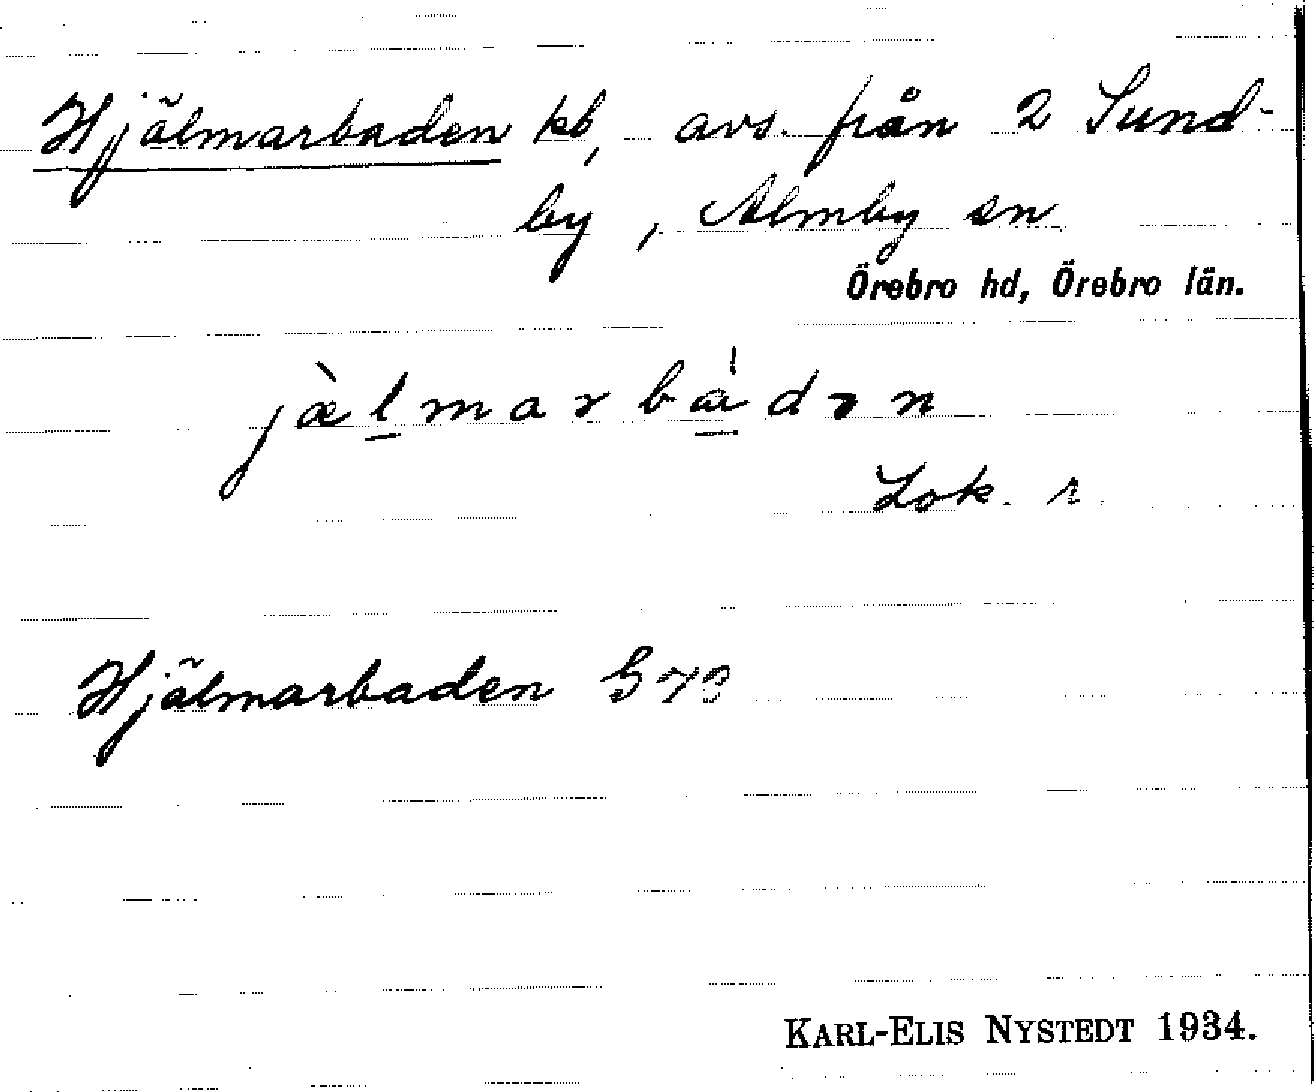 Hjälmarbaden kb, avs. från 2 Sund-
by, Almby sn
Örebro hd, Örebro län.
jæ̀lmarbà̍dən
Lok. r.
Hjälmarbaden G 73
KARL-ELIS NYSTEDT 1934.